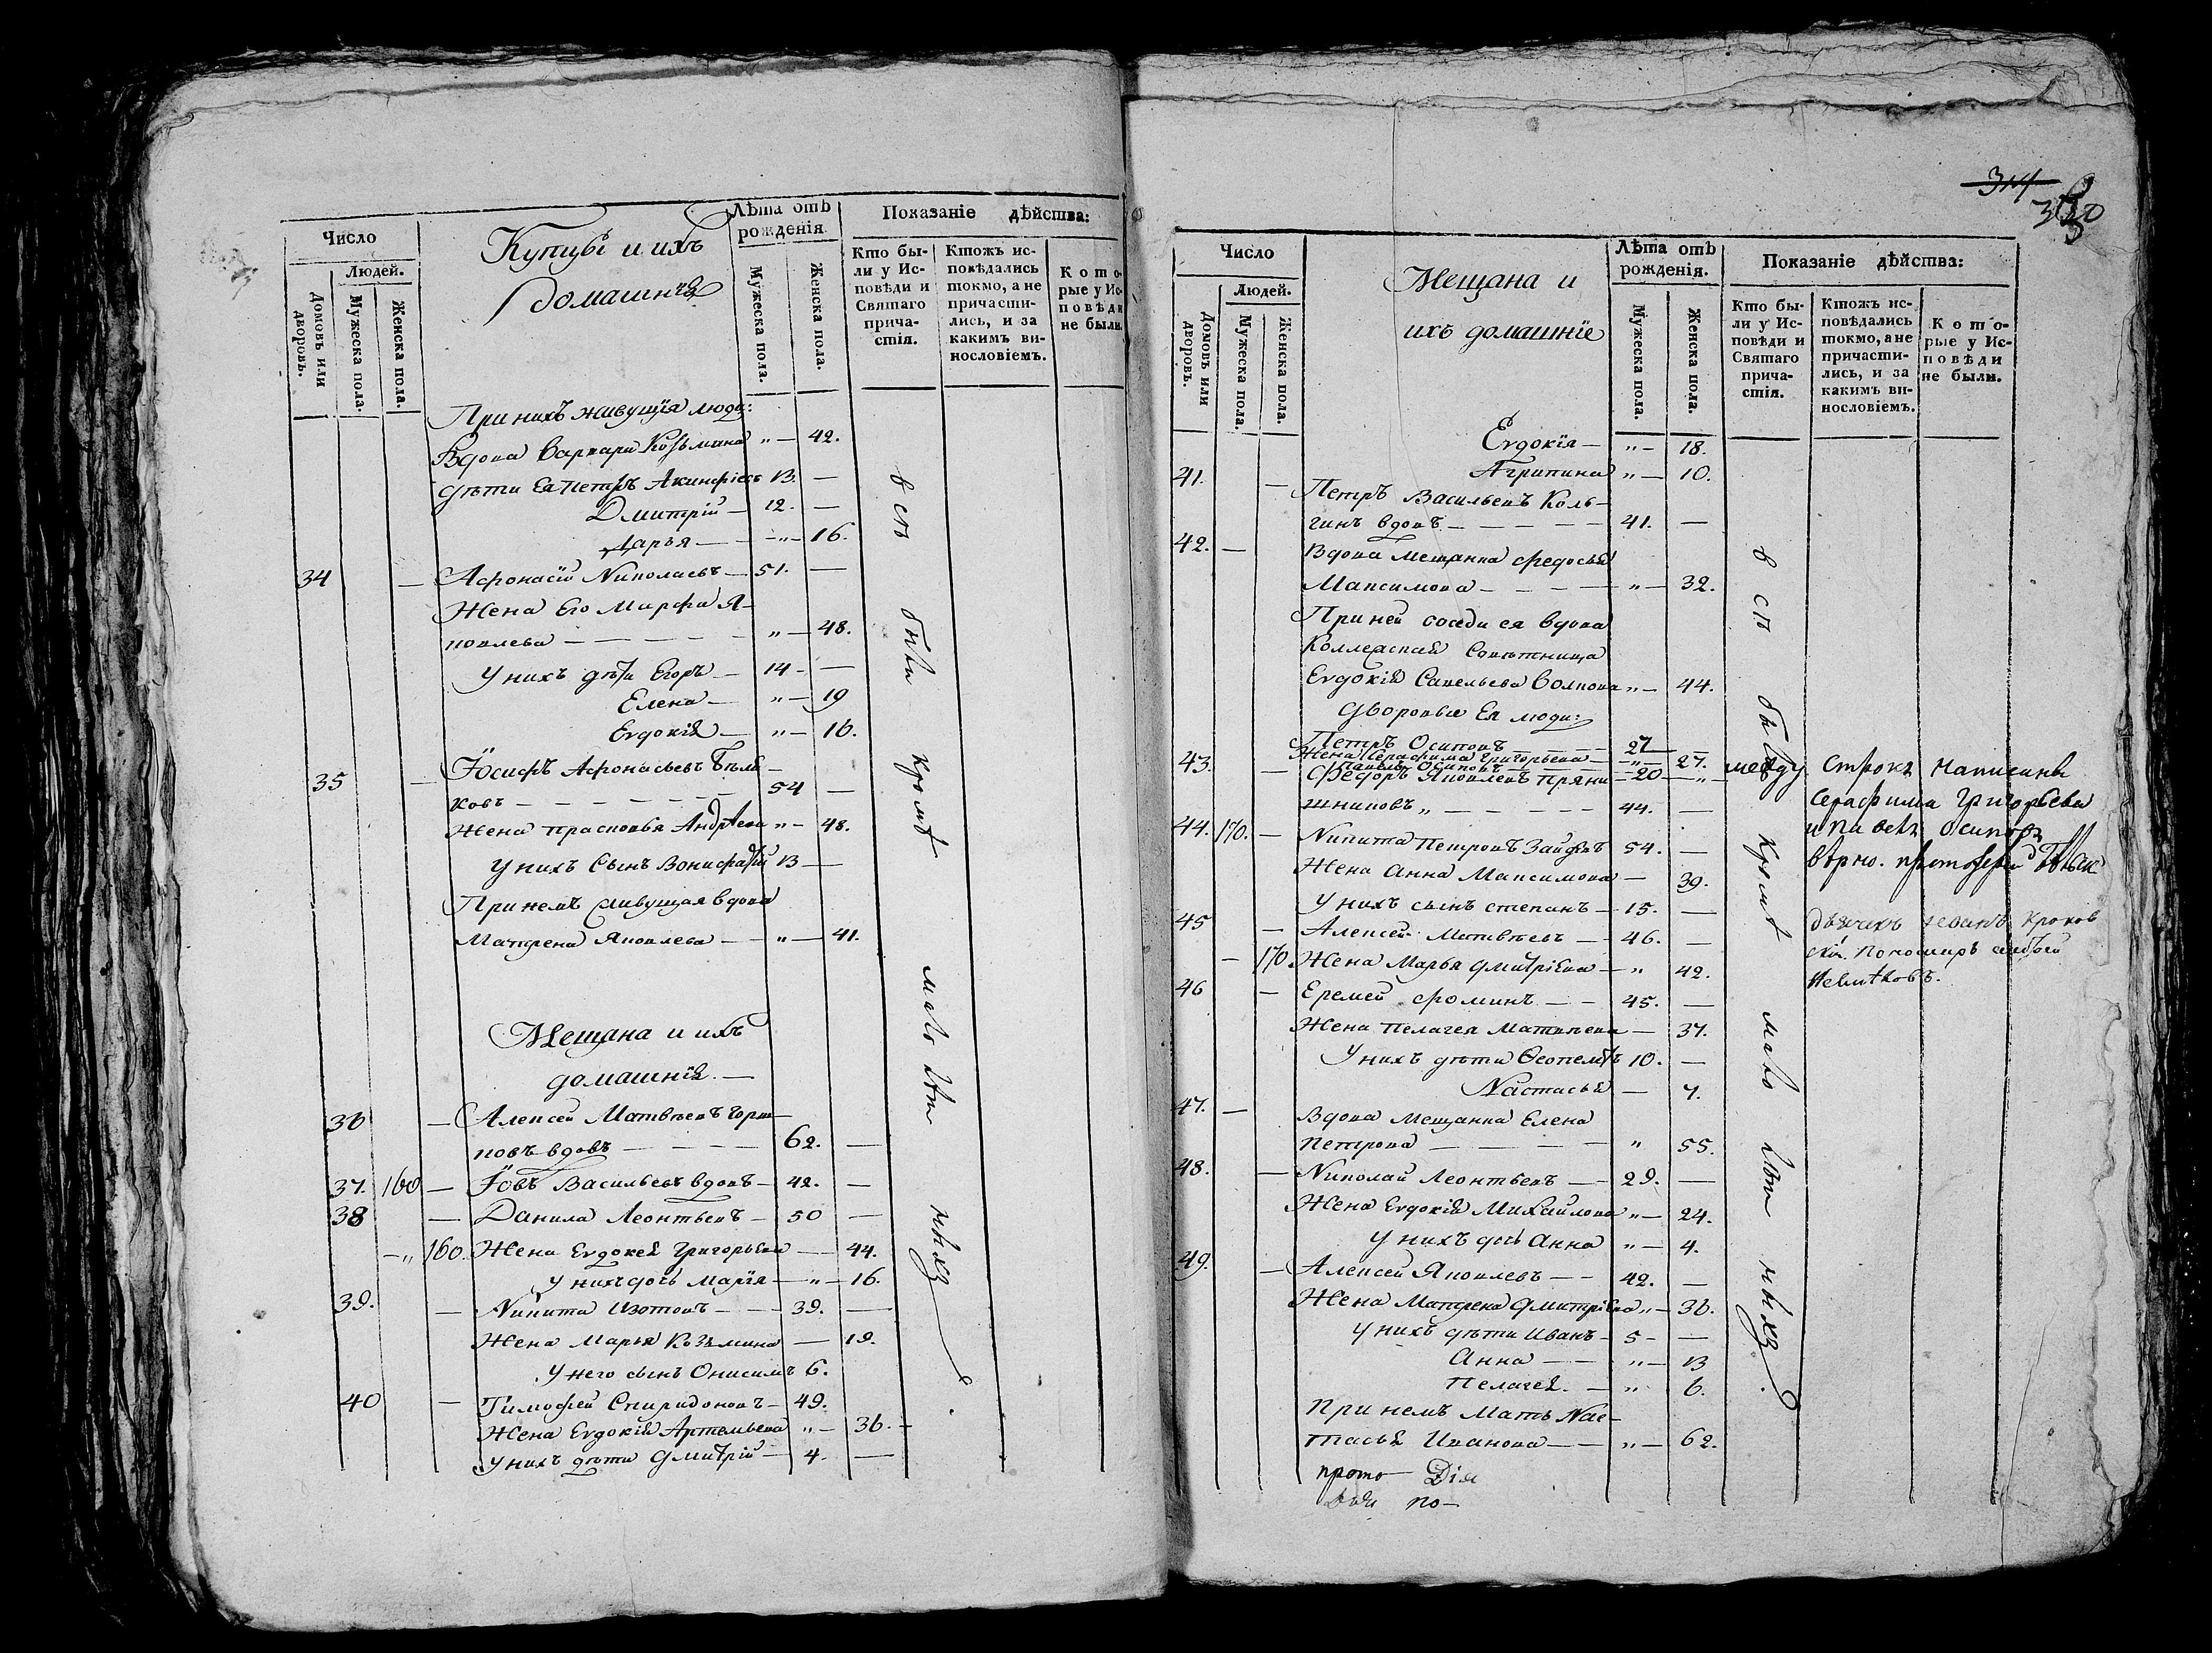 Число
Людей.
Домовъ или дворовъ.
Мужеска пола.
Женска пола.
Купцы и ихъ
домашнія
Лѣта отъ рожденія.
Мужеска пола.
Женска пола.
Показаніе дѣйства:
Кто были у Исповѣди и Святаго причастія.
Ктожъ исповѣдались токмо, а не причастились, и за какимъ винословіемъ.
Которые у Исповѣди не были.
При нихъ живущія люди:
Вдова Варвара Козьмина „ — 42.
дѣти Ея Петръ Акинфіевъ 13. —
Дмитрій — 12. —
Дарья — „ — 16.
34 — Афонасій Николаевъ — 51. —
Жена Его Марфа Я-
ковлева — „ — 48.
У нихъ дѣти Егоръ — 14 — —
Елена — „ — 19
Евдокія — „ — 16.
35 — Іосифъ Афонасьевъ Бѣли-
ковъ — 54 —
Жена Прасковья Андреева „ — 48.
У нихъ Сынъ Вонифатій 13 —
При немъ живущая вдова
Матрена Яковлева — „ — 41.
Мещана и ихъ
домашнія. —
36 — Алексей Матвѣевъ
вдовъ — 62. —
37. 160 — Іовъ Васильевъ вдовъ — 42. —
38 — Данила Леонтьевъ — 50 —
— „ 160. Жена Евдокея Григорьева — 44.
У нихъ дочь Марія — „ — 16.
39. — Никита Изотовъ — 39. —
Жена Марья Козьмина — 19.
У него сынъ Онисимъ 6.
40 — Тимофей Спиридоновъ — 49.
Жена Евдокія Артемьева „ — 36. —
У нихъ дѣти Дмитрій — 4. —
всѣ были кромѣ малолѣтныхъ
314
Число
Людей.
Домовъ или дворовъ.
Мужеска пола.
Женска пола.
Мещана и
ихъ домашніе
Лѣта отъ рожденія.
Мужеска пола.
Женска пола.
Показаніе дѣйства:
Кто были у Исповѣди и Святаго причастія.
Ктожъ исповѣдались токмо, а не причастились, и за какимъ винословіемъ.
Которые у Исповѣди не были.
Евдокія — „ — 18.
Агрипина „ — 10.
41. — Петръ Васильевъ Коль-
гинъ вдовъ — 41. —
42. — Вдова Мещанка Федосья
Максимова — „ — 32.
При ней соседи ея вдова
Коллежская Советница
Евдокія Савельева Волкова „ — 44.
Дворовые Ея люди:
Петръ Осиповъ — 27 —
Жена Серафима Григорьева — „ — 27.
Павелъ Осиповъ — 20 — „
43. — Федоръ Яковлевъ Пряни-
шниковъ „ — 44. —
44. 170. — Никита Петровъ Зайцевъ 54. —
Жена Анна Максимова — 39.
У нихъ сынъ Степанъ — 15. —
45 — Алексей Матвѣевъ — 46. —
— 170. Жена Марья Дмитріева — „ 42.
46 — Еремей Фоминъ — 45. —
Жена Пелагея Матвѣева — 37.
У нихъ дѣти Феопемтъ 10. —
Настасья — 7.
47. — Вдова Мещанка Елена
Петрова — „ 55.
48. — Николай Леонтьевъ — 29. —
Жена Евдокія Михайлова „ — 24.
У нихъ дочь Анна „ — 4.
49. — Алексей Яковлевъ — 42. —
Жена Матрена Дмитріева „ — 36.
У нихъ дѣти Иванъ — 5 — —
Анна — „ — 13
Пелагея. — „ 6.
При немъ Мать Нас-
тасья Иванова — „ — 62.
прото— Дія
по—
всѣ были кромѣ малолѣтныхъ
между строкъ написаны
Серафима Григорьева
и Павелъ Осиповъ
вѣрно.